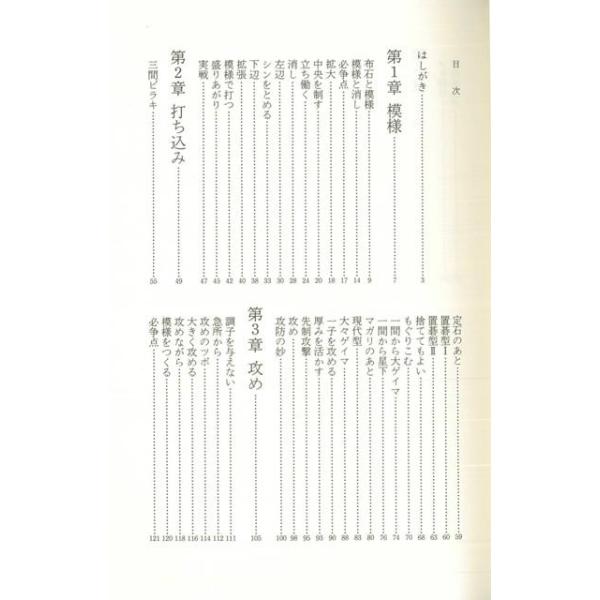 目次
はしがき 3
第1章 模様 7
布石と模様 9
模様と消し 14
必争点 17
拡大 18
中央を制す 20
立ち働く 24
消し 28
左辺 30
シンをとめる 33
下辺 38
拡張 40
模様で打つ 42
盛りあがり 45
実戦 47
第2章 打ち込み 49
三間ビラキ 55
定石のあと 59
置碁型Ⅰ 60
置碁型Ⅱ 63
捨ててもよい 68
もぐりこむ 70
一間から大ゲイマ 74
一間から星下 76
マガリのあと 80
現代型 83
大々ゲイマ 88
一子を攻める 90
厚みを活かす 93
先制攻撃 95
攻め 98
攻防の妙 100
第3章 攻め 105
調子を与えない 111
急所から 112
攻めのツボ 114
大きく攻める 116
攻めながら 118
模様をつくる 120
必争点 121